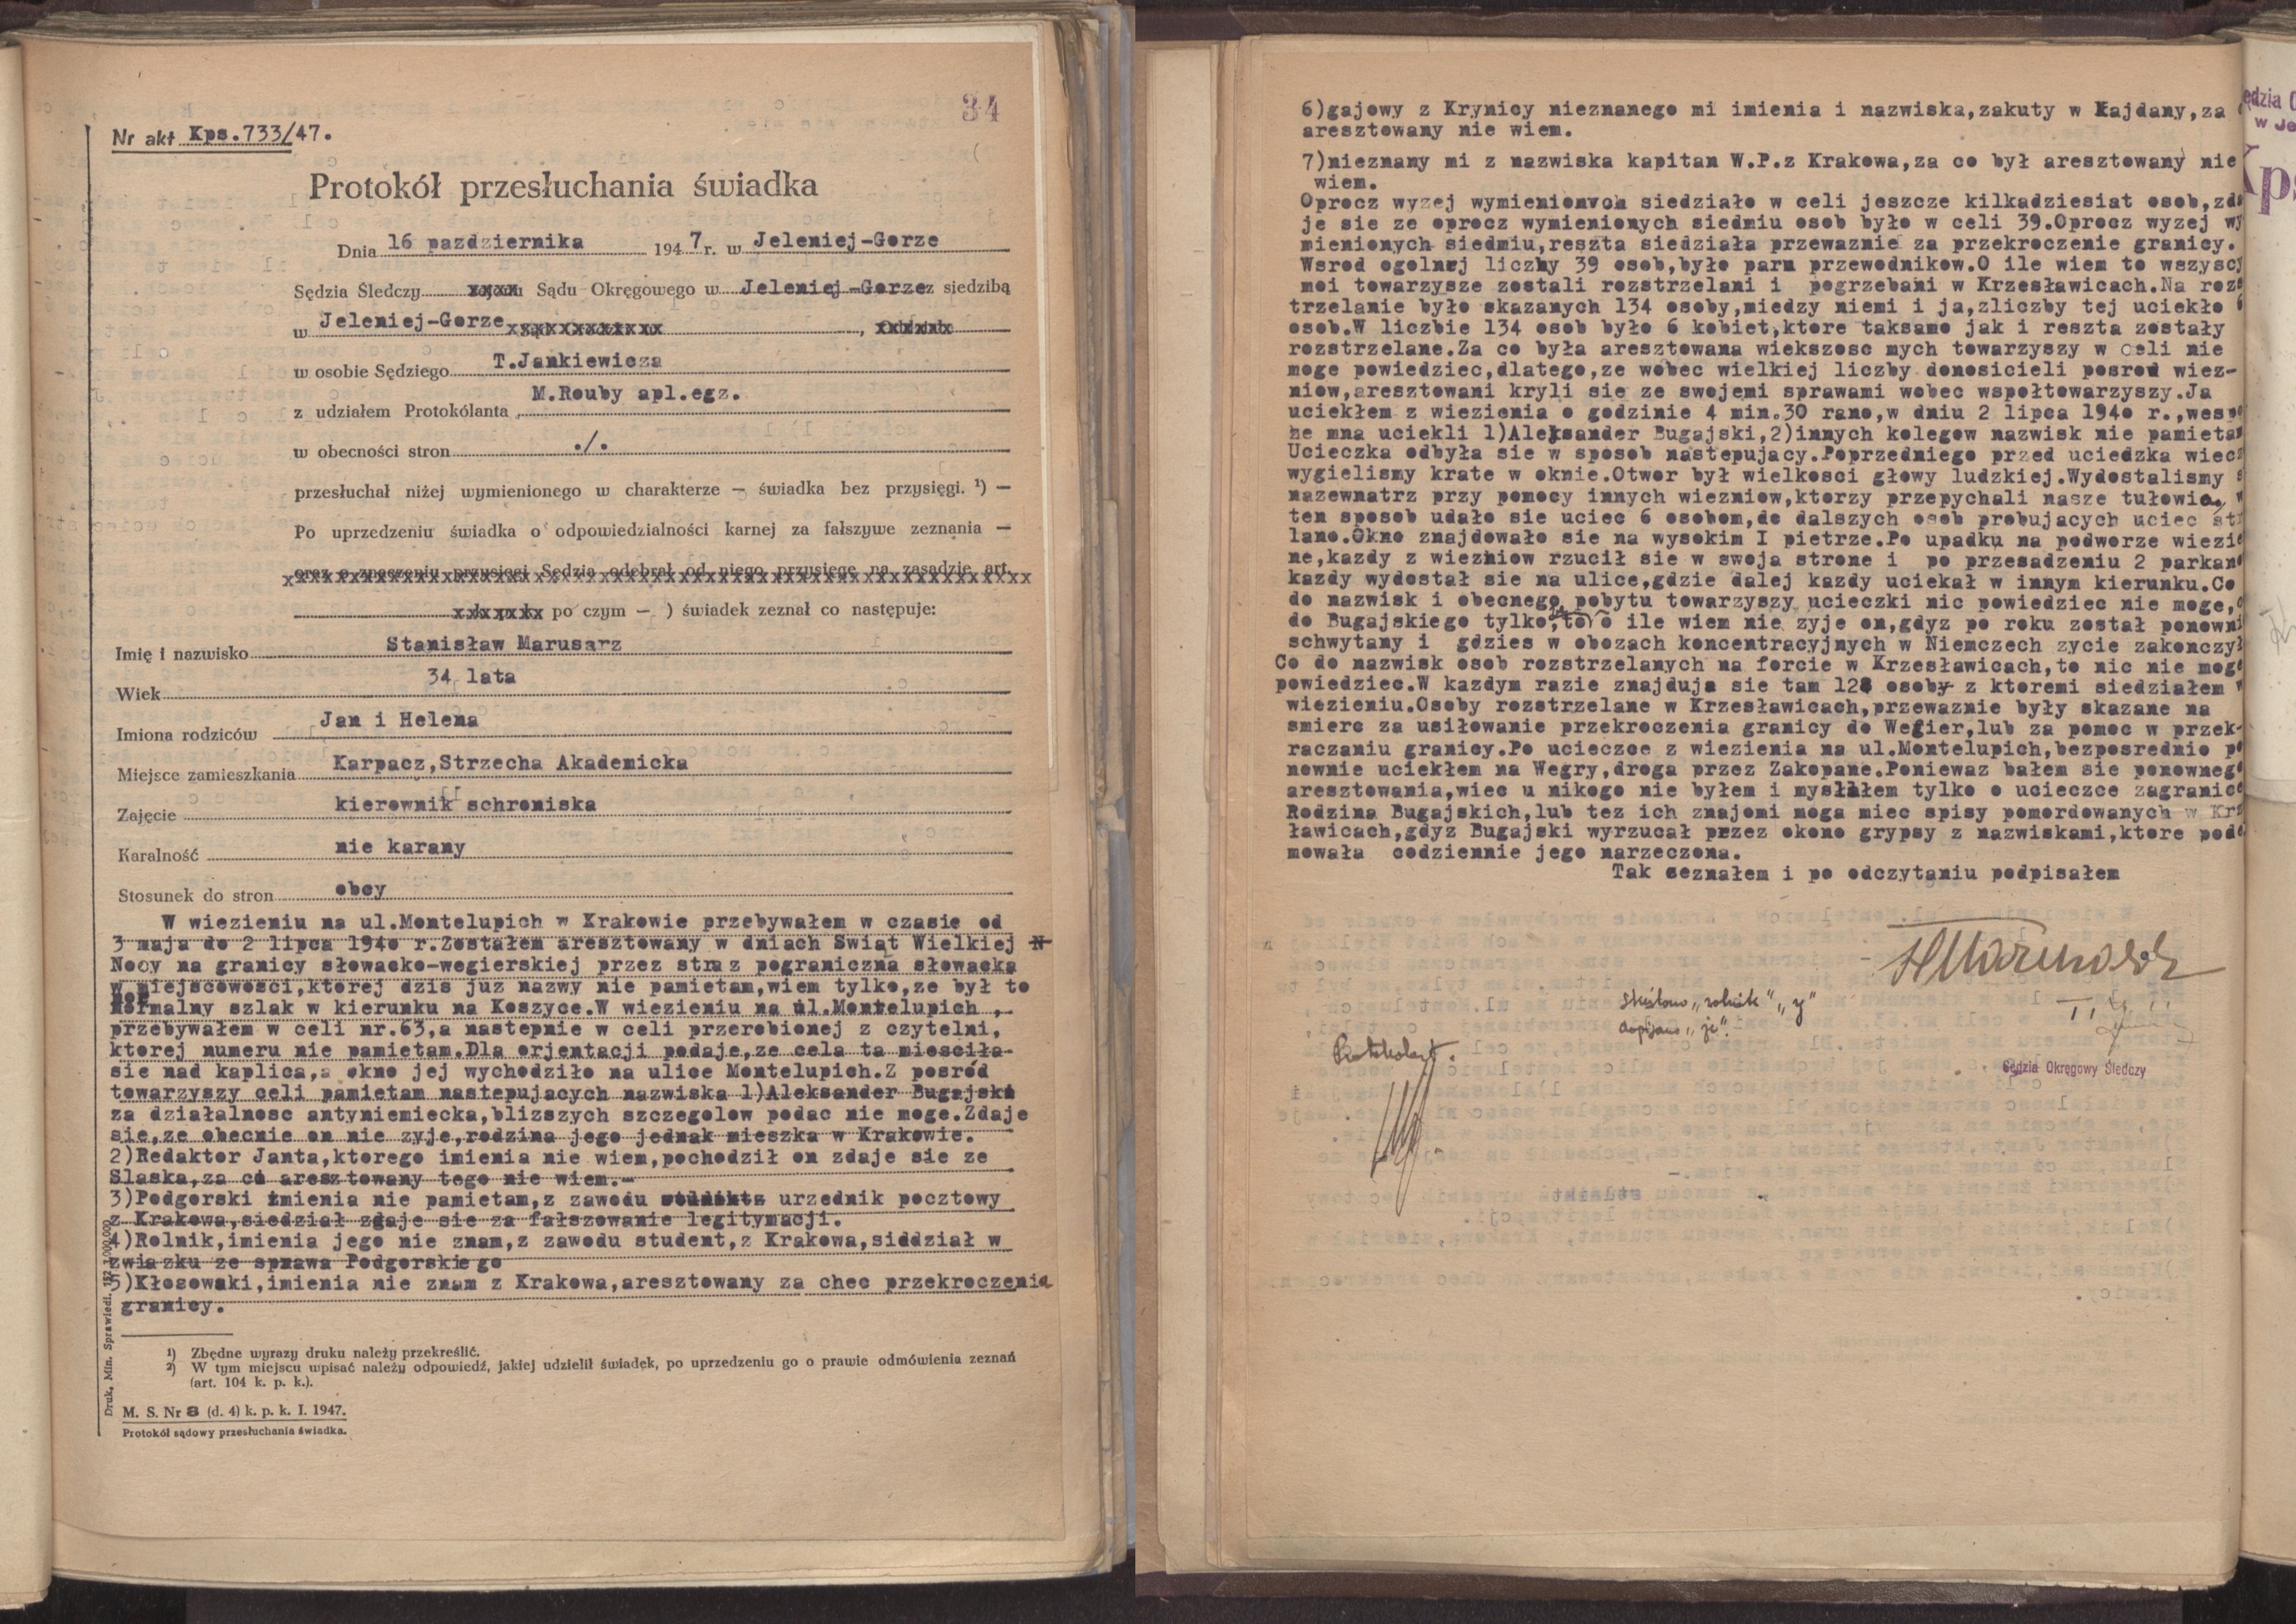 34
Nr akt Kps.733/47.
Protokół przesłuchania świadka
Dnia 16 pazdziernika 1947 r. w Jeleniej-Gorze
Sędzia Śledczy Sądu Okręgowego w Jeleniej-Gorze z siedzibą
w Jeleniej-Gorze xxxxxxxxxxxxx, xxxxxxx
w osobie Sędziego T.Jankiewicza
z udziałem Protokólanta M.Rouby apl.egz.
w obecności stron ./.
przesłuchał niżej wymienionego w charakterze — świadka bez przysięgi. ¹) —
Po uprzedzeniu świadka o odpowiedzialności karnej za fałszywe zeznania —
oraz o znaczeniu przysięgi Sędzia odebrał od niego przysięgę na zasadzie art.
xxxxxxx po czym — ) świadek zeznał co następuje:
Imię i nazwisko Stanisław Marusarz
Wiek 34 lata
Imiona rodziców Jan i Helena
Miejsce zamieszkania Karpacz,Strzecha Akademicka
Zajęcie kierownik schroniska
Karalność nie karany
Stosunek do stron obcy
W wiezieniu na ul.Montelupich w Krakowie przebywałem w czasie od
3 maja do 2 lipca 1940 r.Zostałem aresztowany w dniach Swiąt Wielkiej N
Nocy na granicy słowacko-wegierskiej przez straz pograniczna słowacka
w miejscowosci,ktorej dzis juz nazwy nie pamietam,wiem tylko,ze był to
normalny szlak w kierunku na Koszyce.W wiezieniu na ul.Montelupich ,
przebywałem w celi nr.63,a nastepnie w celi przerobionej z czytelni,
ktorej numeru nie pamietam.Dla orjentacji podaje,ze cela ta miesciła
sie nad kaplica,a okno jej wychodziło na ulice Montelupich.Z posród
towarzyszy celi pamietam nastepujacych nazwiska 1)Aleksander Bugajski
za działalnosc antyniemiecka,blizszych szczegolow podac nie moge.Zdaje
sie,ze obecnie on nie zyje,rodzina jego jednak mieszka w Krakowie.
2)Redaktor Janta,ktorego imienia nie wiem,pochodził on zdaje sie ze
Slaska,za co aresztowany tego nie wiem.-
3)Podgorski imienia nie pamietam,z zawodu urzednik pocztowy
z Krakowa,siedział zdaje sie za fałszowanie legitymacji.
4)Rolnik,imienia jego nie znam,z zawodu student,z Krakowa,siddział w
zwiazku ze sprawa Podgorskiego
5)Kłosowski,imienia nie znam z Krakowa,aresztowany za chec przekroczenia
granicy.
¹) Zbędne wyrazy druku należy przekreślić.
²) W tym miejscu wpisać należy odpowiedź, jakiej udzielił świadek, po uprzedzeniu go o prawie odmówienia zeznań
(art. 104 k. p. k.).
M. S. Nr 8 (d. 4) k. p. k. I. 1947.
Protokół sądowy przesłuchania świadka.
Druk. Min. Sprawiedl.
6)gajowy z Krynicy nieznanego mi imienia i nazwiska,zakuty w Kajdany,za
aresztowany nie wiem.
7)nieznany mi z nazwiska kapitan W.P.z Krakowa,za co był aresztowany nie
wiem.
Oprocz wyzej wymienionych siedziało w celi jeszcze kilkadziesiat osob,zda
je sie ze oprocz wymienionych siedmiu osob było w celi 39.Oprocz wyzej wy
mienionych siedmiu,reszta siedziała przewaznie za przekroczenie granicy.
Wsrod ogolnej liczby 39 osob,było paru przewodnikow.O ile wiem to wszyscy
moi towarzysze zostali rozstrzelani i pogrzebani w Krzesławicach.Na roz
trzelanie było skazanych 134 osoby,miedzy niemi i ja,zliczby tej uciekło 6
osob.W liczbie 134 osob było 6 kobiet,ktore taksamo jak i reszta zostały
rozstrzelane.Za co była aresztowana wiekszosc mych towarzyszy w celi nie
moge powiedziec,dlatego,ze wobec wielkiej liczby donosicieli posrod wiez-
niow,aresztowani kryli sie ze swojemi sprawami wobec wspołtowarzyszy.Ja
uciekłem z wiezienia o godzinie 4 min.30 rano,w dniu 2 lipca 1940 r.,wesp
ze mna uciekli 1)Aleksander Bugajski,2)innych kolegow nazwisk nie pamietam
Ucieczka odbyła sie w sposob nastepujacy.Poprzedniego przed uciedzka wiecz
wygielismy krate w oknie.Otwor był wielkosci głowy ludzkiej.Wydostalismy s
nazewnatrz przy pomocy innych wiezniow,ktorzy przepychali nasze tułowia, w
ten sposob udało sie uciec 6 osobom,do dalszych osob probujacych uciec str
lano.Okno znajdowało sie na wysokim I pietrze.Po upadku na podworze wiezie
ne,kazdy z wiezniow rzucił sie w swoja strone i po przesadzeniu 2 parkan
kazdy wydostał sie na ulice,gdzie dalej kazdy uciekał w innym kierunku.Co
do nazwisk i obecnego pobytu towarzyszy ucieczki nic powiedziec nie moge,
do Bugajskiego tylko, to o ile wiem nie zyje on,gdyz po roku został ponowni
schwytany i gdzies w obozach koncentracyjnych w Niemczech zycie zakonczył
Co do nazwisk osob rozstrzelanych na forcie w Krzesławicach,to nic nie moge
powiedziec.W kazdym razie znajduja sie tam 128 osoby z ktoremi siedziałem w
wiezieniu.Osoby rozstrzelane w Krzesławicach,przewaznie były skazane na
smierc za usiłowanie przekroczenia granicy do Wegier,lub za pomoc w przek-
raczaniu granicy.Po ucieczce z wiezienia na ul.Montelupich,bezposrednio po
nownie uciekłem na Wegry,droga przez Zakopane.Poniewaz bałem sie ponownego
aresztowania,wiec u nikogo nie byłem i myslałem tylko o ucieczce zagranice
Rodzina Bugajskich,lub tez ich znajomi moga miec spisy pomordowanych w Krz
ławicach,gdyz Bugajski wyrzucał przez okono grypsy z nazwiskami,ktore pode
mowała codziennie jego narzeczona.
Tak zeznałem i po odczytaniu podpisałem
StMarusarz
Skreślono „rolnik" „y"
dopisano „je".
Protokolant.
Sędzia Okręgowy Śledczy